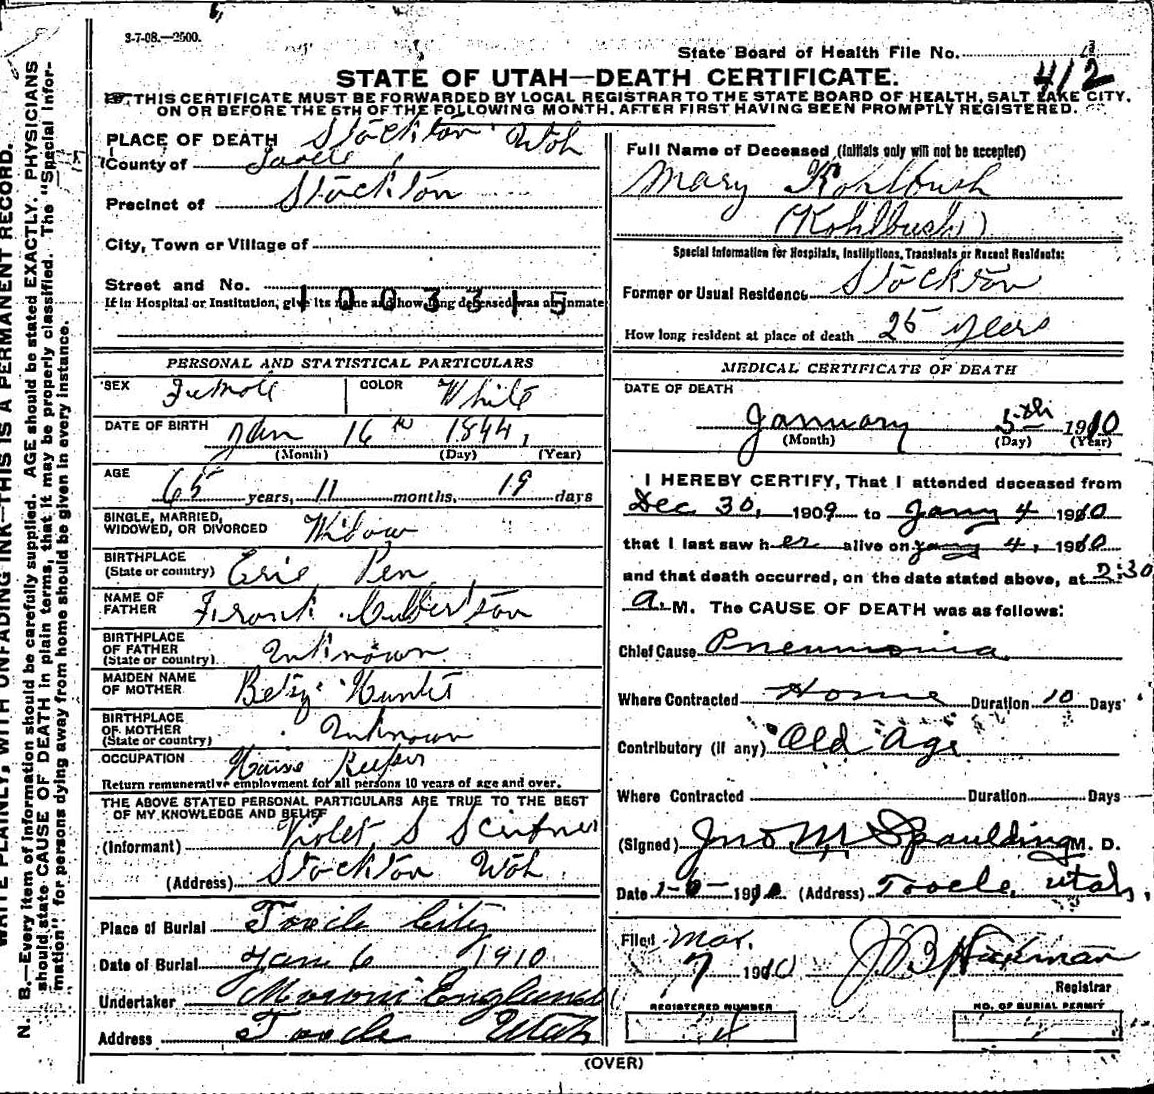 3-7-08.—2500.
State Board of Health File No.
412
STATE OF UTAH—DEATH CERTIFICATE.
THIS CERTIFICATE MUST BE FORWARDED BY LOCAL REGISTRAR TO THE STATE BOARD OF HEALTH, SALT LAKE CITY,
ON OR BEFORE THE 5TH OF THE FOLLOWING MONTH, AFTER FIRST HAVING BEEN PROMPTLY REGISTERED.
PLACE OF DEATH Stockton Utah
County of Tooele
Precinct of Stockton
City, Town or Village of
Street and No.
1003315
If in Hospital or Institution, give its name and how long deceased was an inmate
PERSONAL AND STATISTICAL PARTICULARS
SEX Female COLOR White
DATE OF BIRTH Jan 16th 1844,
(Month) (Day) (Year)
AGE 65 years, 11 months, 19 days
SINGLE, MARRIED,
WIDOWED, OR DIVORCED Widow
BIRTHPLACE
(State or country) Erie Pen
NAME OF
FATHER Frank Culbertson
BIRTHPLACE
OF FATHER
(State or country) Unknown
MAIDEN NAME
OF MOTHER Betsy
BIRTHPLACE
OF MOTHER
(State or country) Unknown
OCCUPATION House Keeper
Return remunerative employment for all persons 10 years of age and over.
THE ABOVE STATED PERSONAL PARTICULARS ARE TRUE TO THE BEST
OF MY KNOWLEDGE AND BELIEF
(Informant) Violet S
(Address) Stockton Utah
Place of Burial Tooele City
Date of Burial Jan 6 1910
Undertaker Moroni Englund
Address Tooele Utah
Full Name of Deceased (Initials only will not be accepted)
Mary Kohlbush
(Kohlbush)
Special Information for Hospitals, Institutions, Transients or Recent Residents:
Former or Usual Residence Stockton
How long resident at place of death 25 years
MEDICAL CERTIFICATE OF DEATH
DATE OF DEATH
January 5th 1910
(Month) (Day) (Year)
I HEREBY CERTIFY, That I attended deceased from
Dec 30, 1909 to Jany 4 1910
that I last saw her alive on Jany 4, 1910
and that death occurred, on the date stated above, at 2:30
a. M. The CAUSE OF DEATH was as follows:
Chief Cause Pneumonia
Where Contracted Home Duration 10 Days
Contributory (if any) Old Age
Where Contracted Duration Days
(Signed) Jno M Spaulding M. D.
Date 1-6-1910 (Address) Tooele, Utah,
Filed Mar.
7 1910 J. B. Hickman
Registrar
REGISTERED NUMBER
4
NO. OF BURIAL PERMIT
(OVER)
WRITE PLAINLY, WITH UNFADING INK—THIS IS A PERMANENT RECORD.
N. B.—Every item of information should be carefully supplied. AGE should be stated EXACTLY. PHYSICIANS
should state CAUSE OF DEATH in plain terms, that it may be properly classified. The "Special Infor-
mation" for persons dying away from home should be given in every instance.